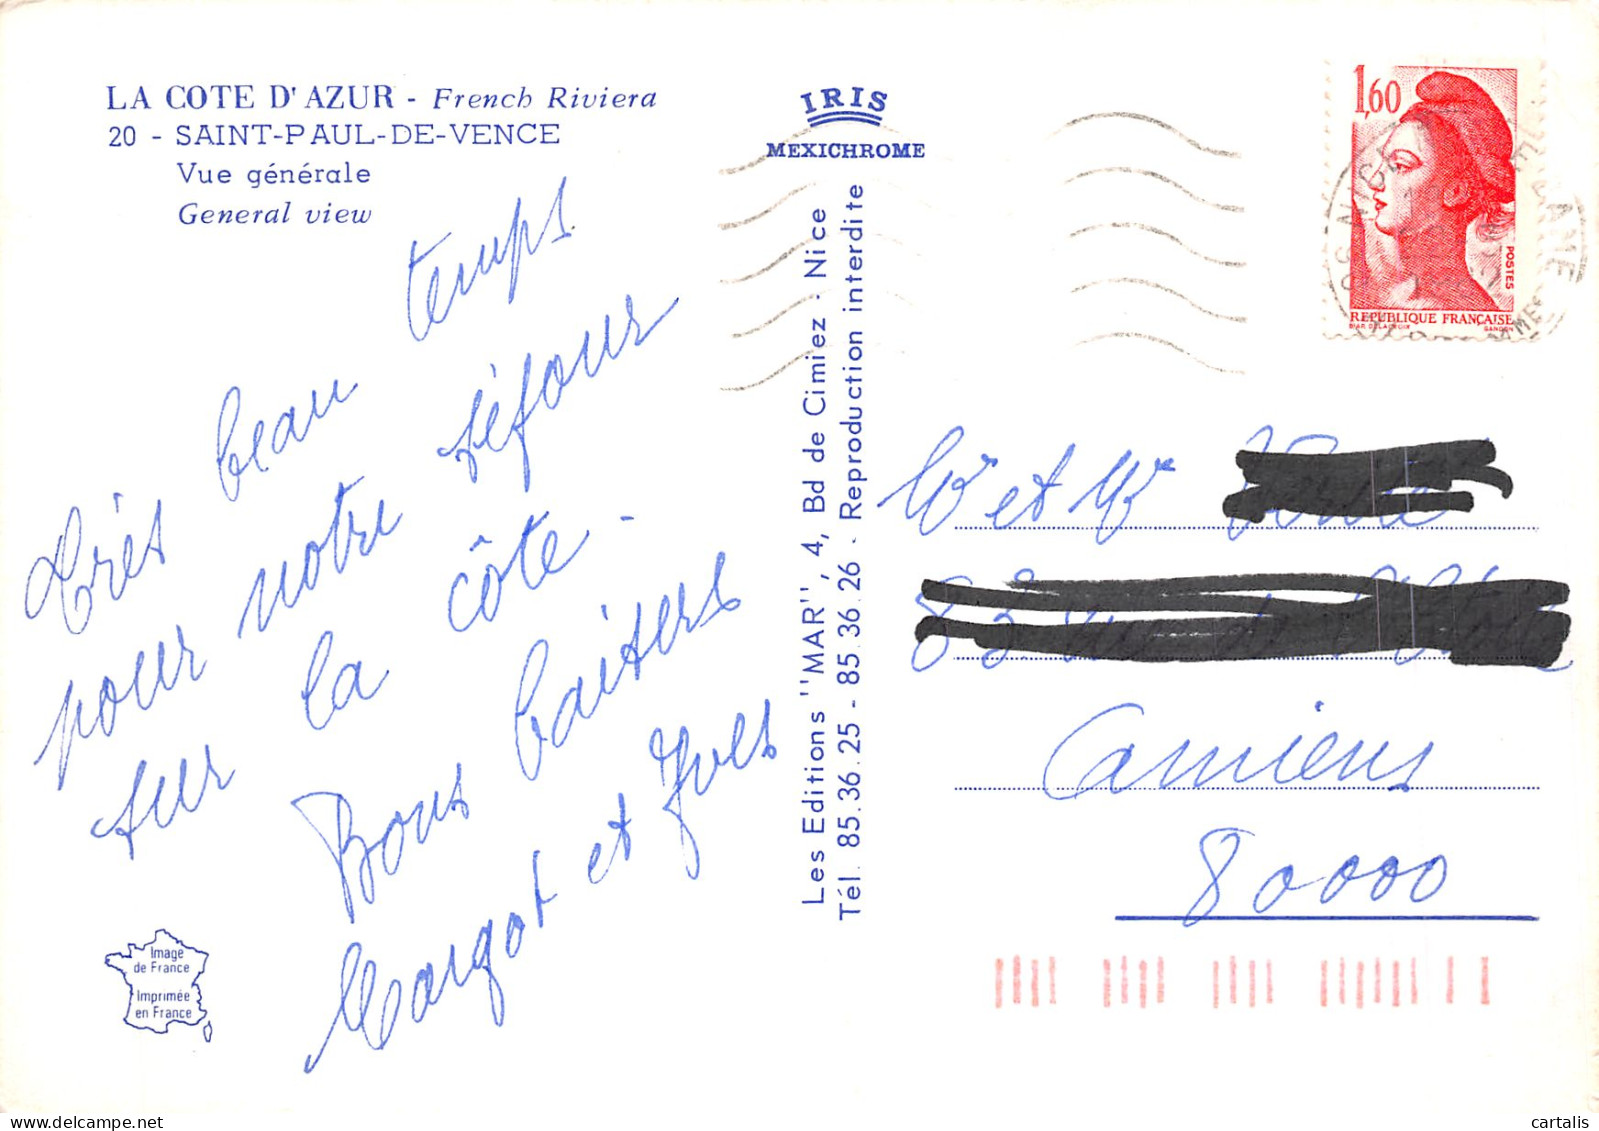 LA COTE D'AZUR - French Riviera
20 - SAINT-PAUL-DE-VENCE
Vue générale
General view
IRIS
MEXICHROME
1,60
POSTES
REPUBLIQUE FRANÇAISE
D'AP. DELACROIX GANDON
Très beau temps
pour notre séjour
sur la côte -
Bons baisers
Margot et Yves
Les Editions "MAR", 4, Bd de Cimiez - Nice
Tél. 85.36.25 - 85.36.26 - Reproduction interdite
Mr et Me
83
Amiens
80000
Image
de France
Imprimée
en France
cartalis